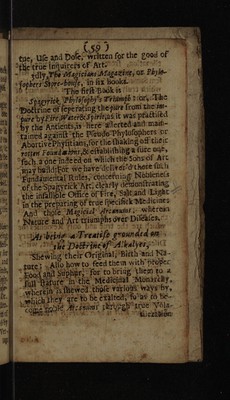 ( 59 )
tue, Use and Dose, written for the good of
the true inquirers of Art.
3dly, The Magicians Magazine, or Phylo-
sophers Store-house, in six books.
The first Book is
Spagyrick Phylosophy's Triumph: or, The
Doctrine of seperating the pure from the im-
pure by Fire, Water & Spirit, as it was practised
by the Antients, is here asserted and main-
tained against the Pseudo Phylosophers or
Abortive Physitians, for the shaking off their
rotten Foundation, & establishing a sure one,
such a one indeed on which the Sons of Art
may build: For we have deliver'd those such
Fundamental Rules, concerning Nobleness
of the Spagyrick Art, clearly demonstrating
the infallible Office of Fire, Salt and Light
in the preparing of true specifick Medicines
And those Magical Arcanums, whereas
Nature and Art triumphs over Diseases.
As being a Treatise grounded on
the Doctrine of Alkalyes,
Shewing their Original, Birth and Na-
ture: Also how to feed them with proper
Food and Sulphur, for to bring them to a
full stature in the Medicinal Monarchy,
wherein is shewed those various ways by
which they are to be exalted, so as to be-
come noble Arcanums through true Vola-